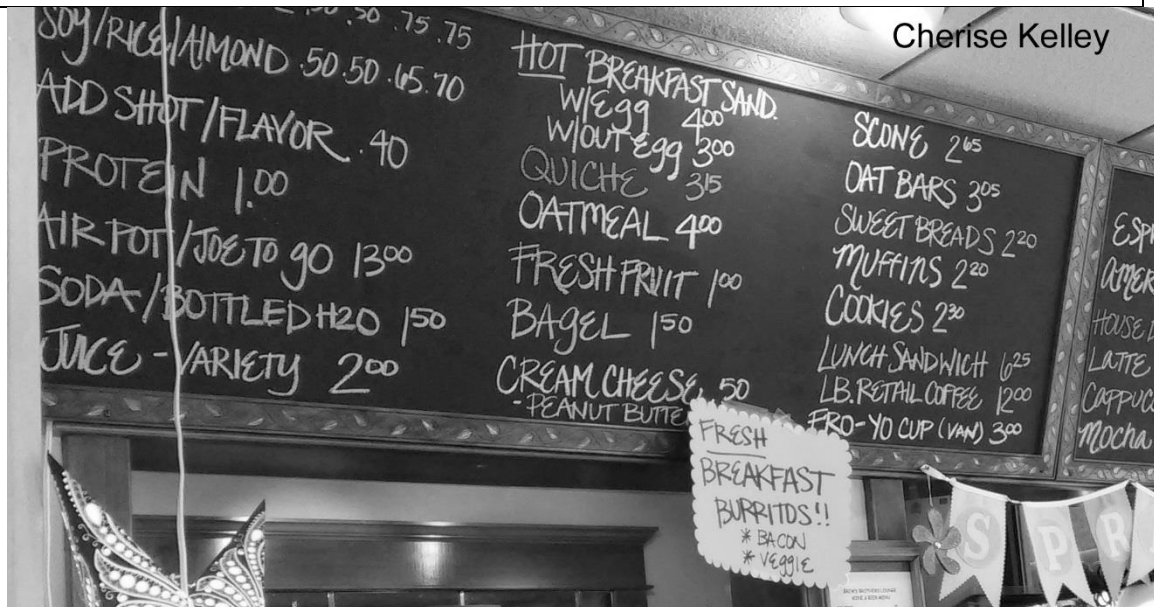 Cherise Kelley
.50 .50 .75 .75
SOY/RICE/ALMOND .50 .50 .65 .70
ADD SHOT/FLAVOR .40
PROTEIN 1.00
AIR POT/JOE TO GO 1300
SODA/BOTTLED H2O 150
JUICE - VARIETY 200
HOT BREAKFAST SAND.
W/Egg 400
W/OUT Egg 300
QUICHE 315
OATMEAL 400
FRESH FRUIT 100
BAGEL 150
CREAM CHEESE .50
- PEANUT
SCONE 265
OAT BARS 305
SWEET BREADS 220
MUFFINS 220
COOKIES 230
LUNCH SANDWICH 625
LB. RETAIL COFFEE 1200
FRO-YO CUP (VAN) 300
HOUSE
LATTE
MOCHA
FRESH
BREAKFAST
BURRITOS!!
* BACON
* VEGGIE
SPR